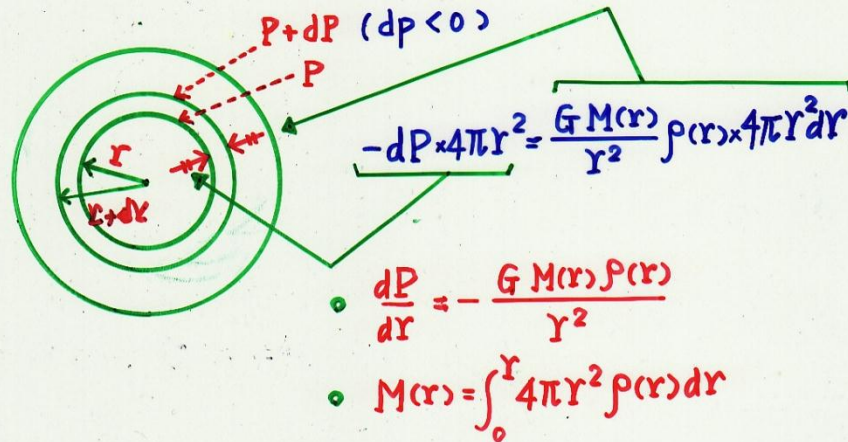 P+dP (dp<0)
P
r
r+dr
-dP×4πr²= GM(r)/r² ρ(r)×4πr²dr
dP/dr = - GM(r)ρ(r)/r²
M(r)=∫₀ʳ4πr²ρ(r)dr